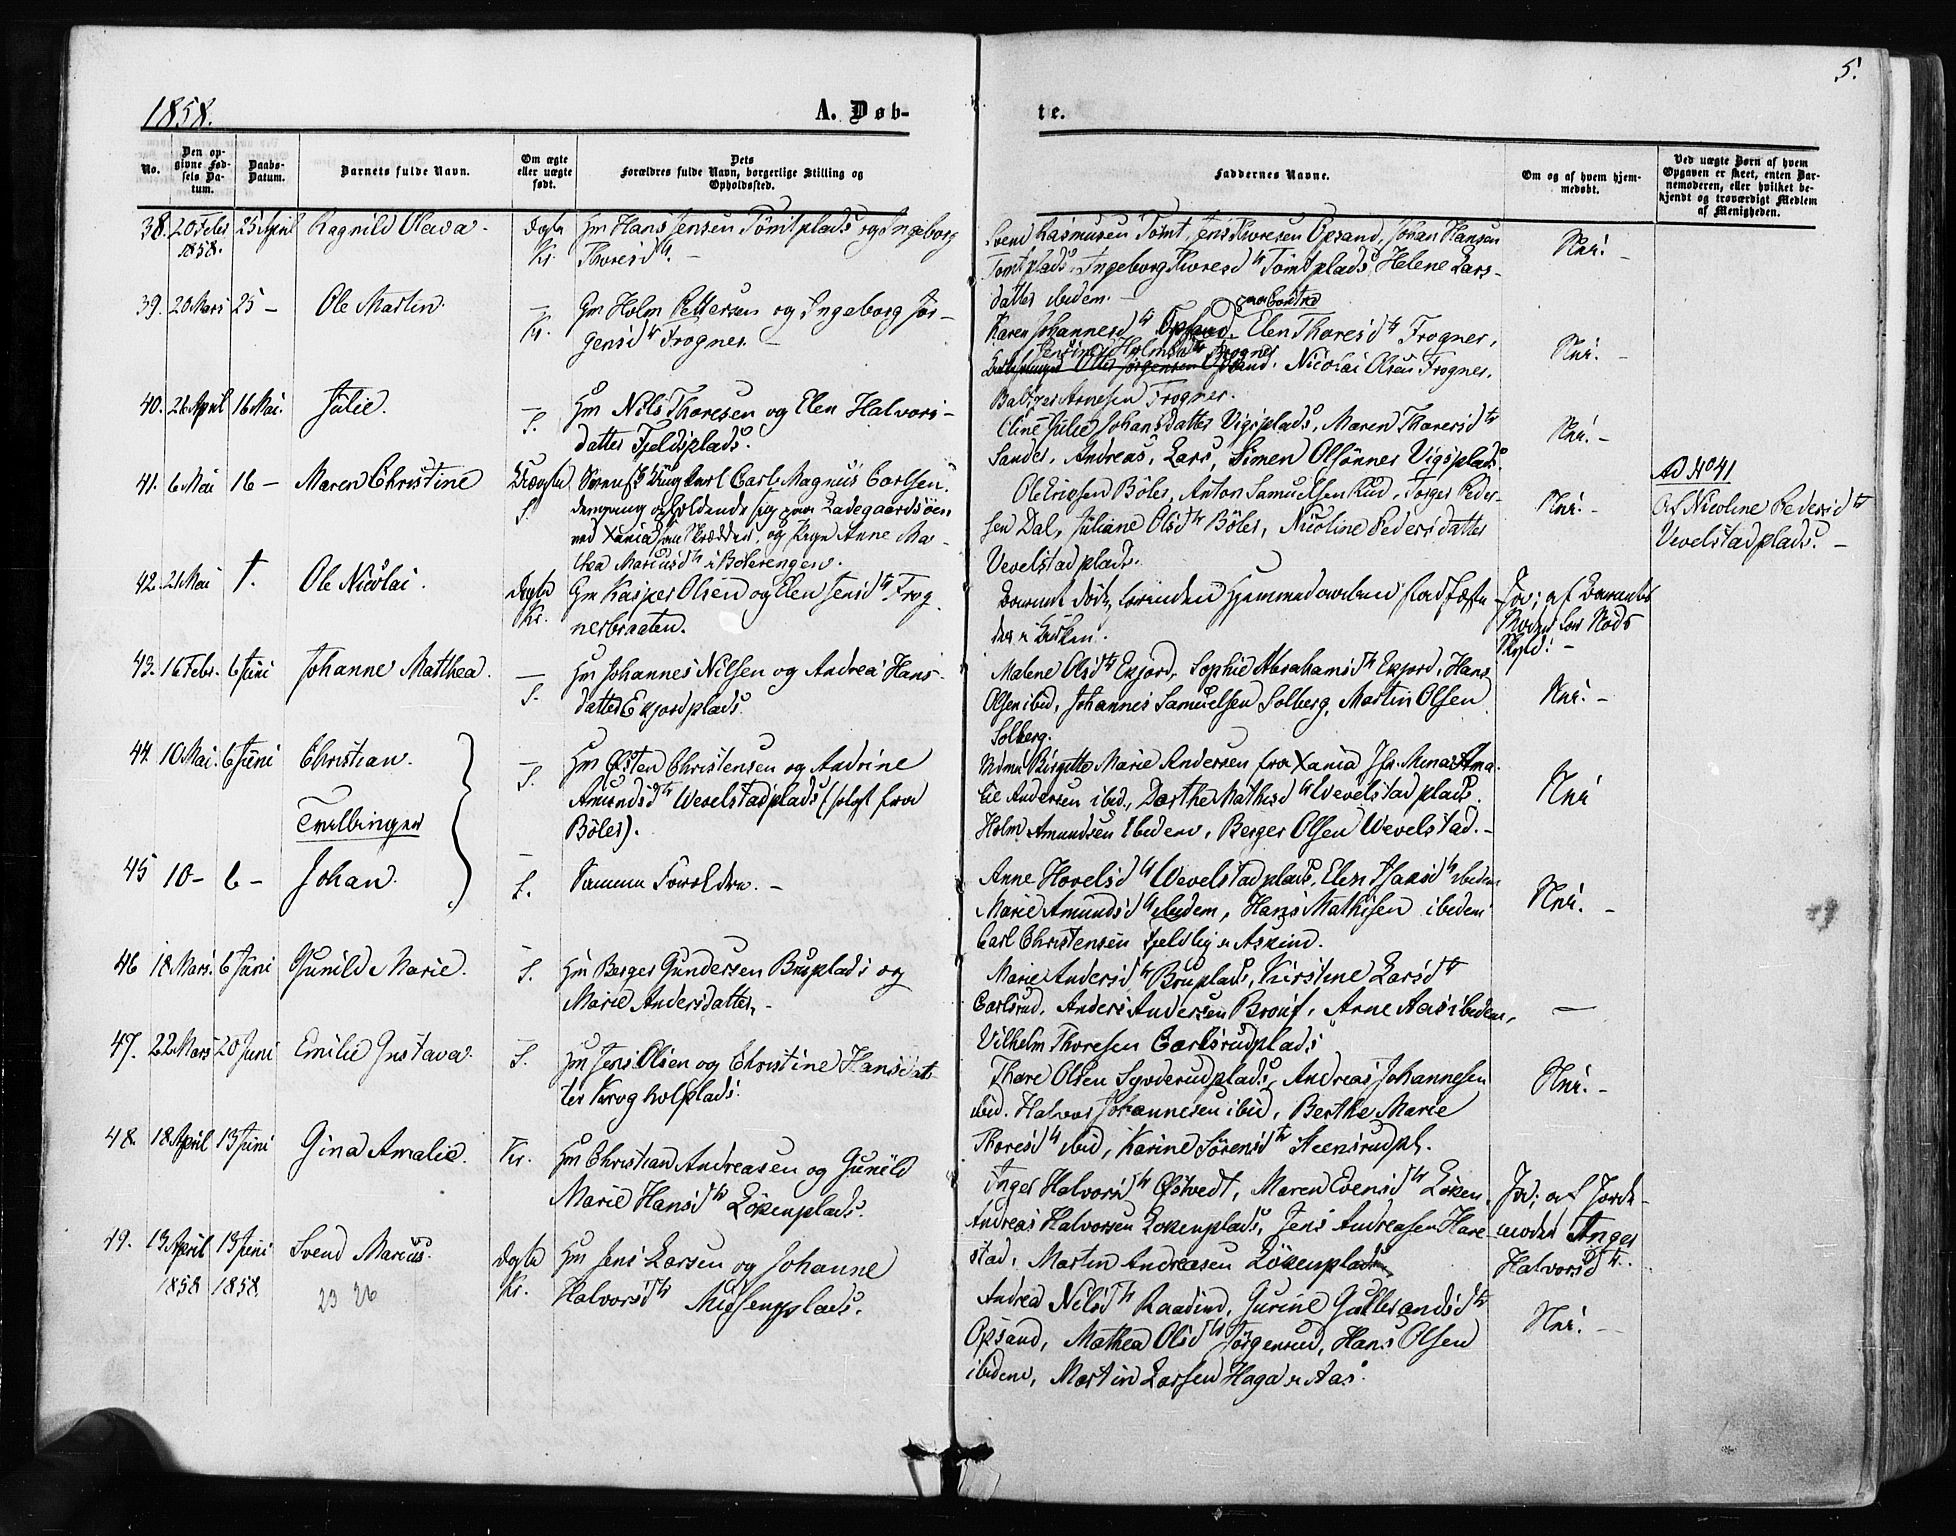 5.
1858.
A. Døb-
te.
No.
Den op-
givne Fød-
sels Da-
tum.
Daabs-
Datum.
Barnets fulde Navn.
Om ægte
eller uægte
født.
Dets
Forældres fulde Navn, borgerlige Stilling og
Opholdssted.
Faddernes Navne.
Om og af hvem hjem-
medøbt.
Ved uægte Børn af hvem
Opgaven er skeet, enten Bar-
nemoderen, eller hvilket be-
kjendt og troværdigt Medlem
af Menigheden.
38. 20 Febr 25 April Ragnild Olava. Ægte Gm Hans Jensen Tomtplads og Ingeborg
1858. Kr. Thoresdtr. –
Svend Rasmusen Tomt, Jens Thoresen Opsand, Johan Hansen
Tomtplads, Ingeborg Thoresdtr Tomtplads, Helene Lars-
datter ibidem. –
Nei. –
39. 20 Mars 25 – Ole Martin. – Gm Holm Pettersen og Ingeborg Jør-
Kr. gensdtr Frogner. –
Karen Johannesdtr Opsand, Elen Thoresdtr Frogner,
Jensine Holmsdtr Frogner
Jørgensen Opsand, Nicolai Olsen Frogner,
Baltzer Arnesen Frogner.
Nei. –
40. 26 April 16 Mai. Julie. – Gm Nils Thoresen og Elen Halvors-
S. datter Fjeldsplads.
Eline Julie Johansdatter Vigsplads, Maren Thoresdtr
Sander, Andreas, Lars, Simen Olsønner Vigsplads.
Nei. –
41. 6 Mai 16 – Maren Christine Uægte Carl Magnus Carlsen.
S. Ladegaardsøen
ved Xania og Pige Anne Ma-
thea Mariusdtr i Bølerengen.
Ole Ericsen Bøler, Anton Samuelsen Rud, Torger Peder-
sen Dal, Juliane Olsdtr Bøler, Nicoline Pedersdatter
Vevelstadplads.
Nei. –
Ad No 41
Af Nicoline Pedersdtr
Vevelstadplads. –
42. 21 Mai †. Ole Nicolai. Ægte Gm Kasper Olsen og Elen Jensdtr Frog-
Kr. nerbraaten.
Barnet døde, forinden Hjemmedaaben stadfæste-
des i Kirken.
Ja; af Barnets
Moder for Nøds
Skyld. –
43. 16 Febr. 6 Juni Johanne Matthea. – Gm Johannes Nilsen og Andrea Hans-
S. datter Exjordplads.
Malene Olsdtr Exjord, Sophie Abrahamsdtr Exjord, Hans
Olsen ibid, Johannes Samuelsen Solberg, Martin Olsen
Solberg.
Nei. –
44. 10 Mai. 6 Juni Christian. – Gm Østen Christensen og Andrine
S. Amundsdtr Wevelstadplads
Tvillinger
Bøler).
Birgitte Marie Andersen fra Xania, Jfr. Mena Ama-
lie Andersen ibid., Dorthe Mathisdtr Wevelstadplads,
Holm Amundsen ibidem, Berger Olsen Wevelstad. –
Nei
45 10 – 6 – Johan. – S. Samme Forældre. –
Anne Hovelsdtr Wevelstadplads, Elen Hansdtr ibidem
Marie Amundsdtr ibidem, Hans Mathisen ibidem
Carl Christensen Fjeldlig i Askim.
Nei. –
46 18 Mars. 6 Juni Gunild Marie. – S. Gm Berger Gundersen Bruplads og
Marie Andersdatter. –
Marie Andersdtr Bruplads, Kirstine Larsdtr
Carlsrud, Anders Andersen Arne Aas ibidem,
Vilhelm Thoresen Carlsrudplads
–
47. 22 Mars 20 Juni Emilie Gustava. – S. Gm Jens Olsen og Christine Hansdat-
ter Krogholplads.
Thore Olsen Syverudplads, Andreas Johannesen
ibid. Halvor Johannesen ibid, Berthe Marie
Thoresdtr ibid, Karine Sørensdtr Steensrudpl.
Nei. –
48. 18 April 13 Juni Gina Amalie. Kr. Gm Christian Andreasen og Gunild
Marie Hansdtr Løkenplads.
Inger Halvorsdtr Østvedt, Maren Evensdtr Løken,
Andreas Halvorsen Løkenplads, Jens Andreasen Hare-
stad, Martin Andreasen Løkenplads
Ja; af Jorde-
moder Inger
Halvorsdtr.
49. 13 April 13 Juni Svend Marius. Ægte Gm Jens Larsen og Johanne
1858 1858. Kr. Halvorsdtr Missenplads.
23 26
Andrea Nilsdtr Raadim, Gurine Gulbrandsdtr
Opsand, Mathea Olsdtr Jørgensrud, Hans Olsen
ibidem, Martin Larsen Haga i Aas.
Nei. –